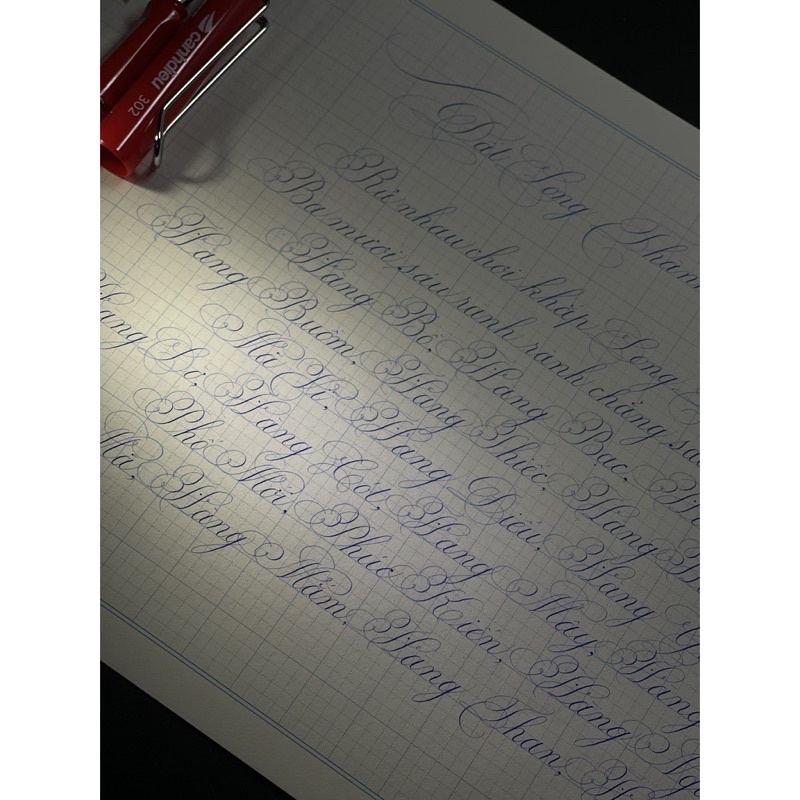 canhdieu
302
Đất Long Thành
Rủ nhau chơi khắp Long
Ba mươi sáu ranh ranh chẳng sai
Hàng Bồ, Hàng Bạc,
Hàng Buồm, Hàng Thiếc, Hàng
Mã Vĩ, Hàng Điếu, Hàng
Hàng Lờ, Hàng Cót, Hàng Mây, Hàng
Phố Mới, Phúc Kiến, Hàng
Mã, Hàng Mắm, Hàng Than,